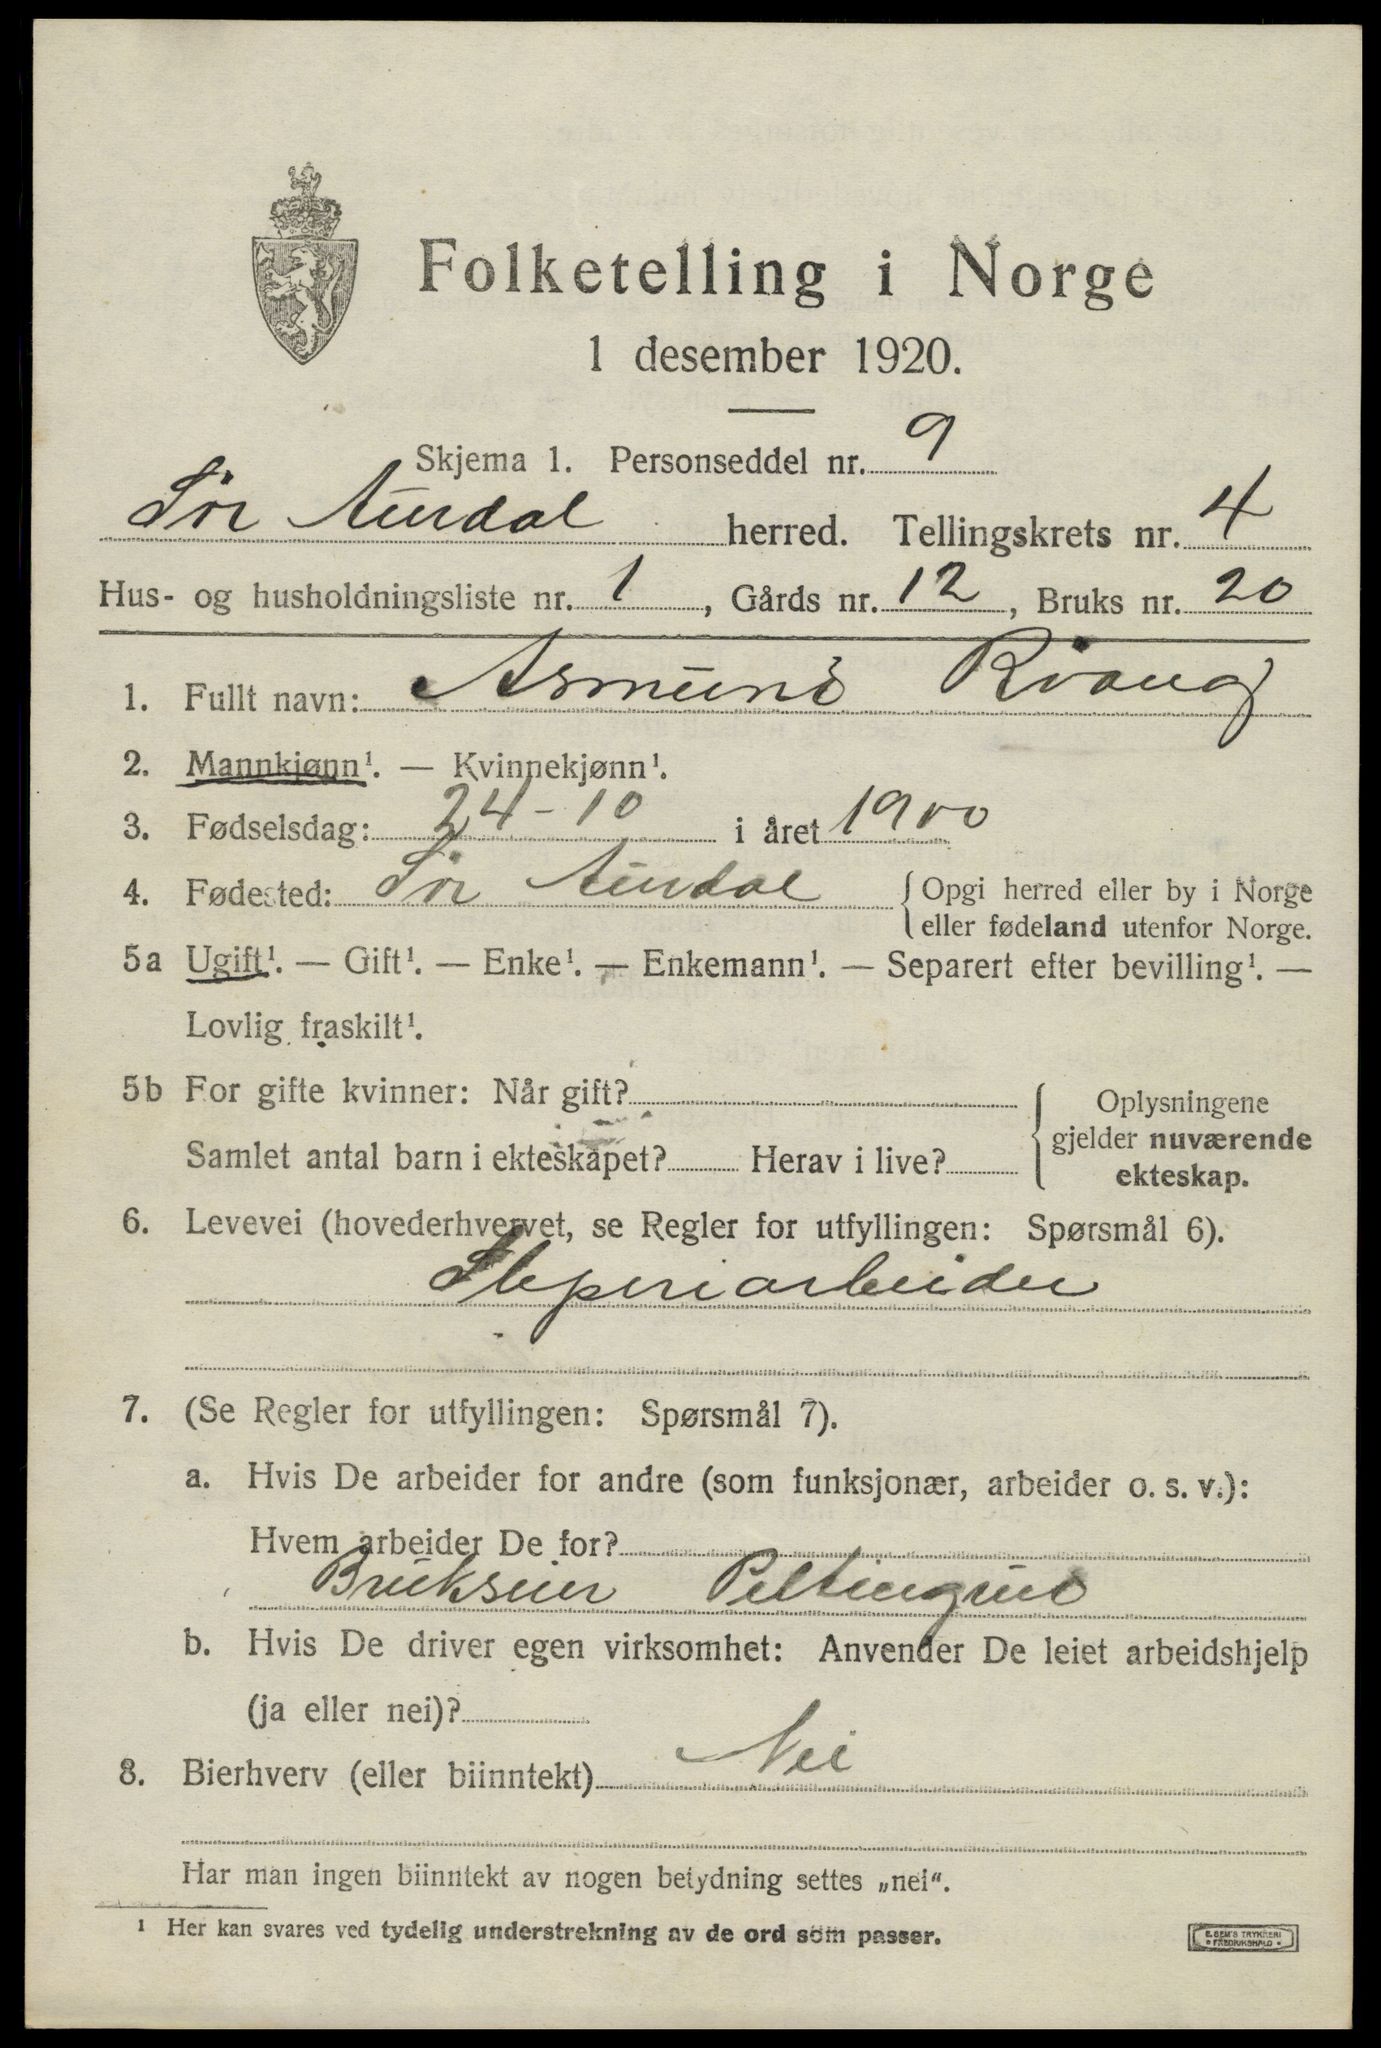 Folketelling i Norge
1 desember 1920.
Skjema 1. Personseddel nr. 9
Sør Aurdal herred. Tellingskrets nr. 4
Hus- og husholdningsliste nr. 1, Gårds nr. 12, Bruks nr. 20
1. Fullt navn: Asmund
2. Mannkjønn¹. — Kvinnekjønn¹.
3. Fødselsdag: 24-10 i året 1900
4. Fødested: Sør Aurdal { Opgi herred eller by i Norge
eller fødeland utenfor Norge.
5a Ugift¹. — Gift¹. — Enke¹. — Enkemann¹. — Separert efter bevilling¹. —
Lovlig fraskilt¹.
5b For gifte kvinner: Når gift?
Samlet antal barn i ekteskapet? Herav i live?
Oplysningene
gjelder nuværende
ekteskap.
6. Levevei (hovederhvervet, se Regler for utfyllingen: Spørsmål 6).
Sliperiarbeider
7. (Se Regler for utfyllingen: Spørsmål 7).
a. Hvis De arbeider for andre (som funksjonær, arbeider o. s. v.):
Hvem arbeider De for?
Brukseier
b. Hvis De driver egen virksomhet: Anvender De leiet arbeidshjelp
(ja eller nei)?
8. Bierhverv (eller biinntekt) Nei
Har man ingen biinntekt av nogen betydning settes „nei".
¹ Her kan svares ved tydelig understrekning av de ord som passer.
E. SEM'S TRYKKERI
• FREDRIKSHALD •